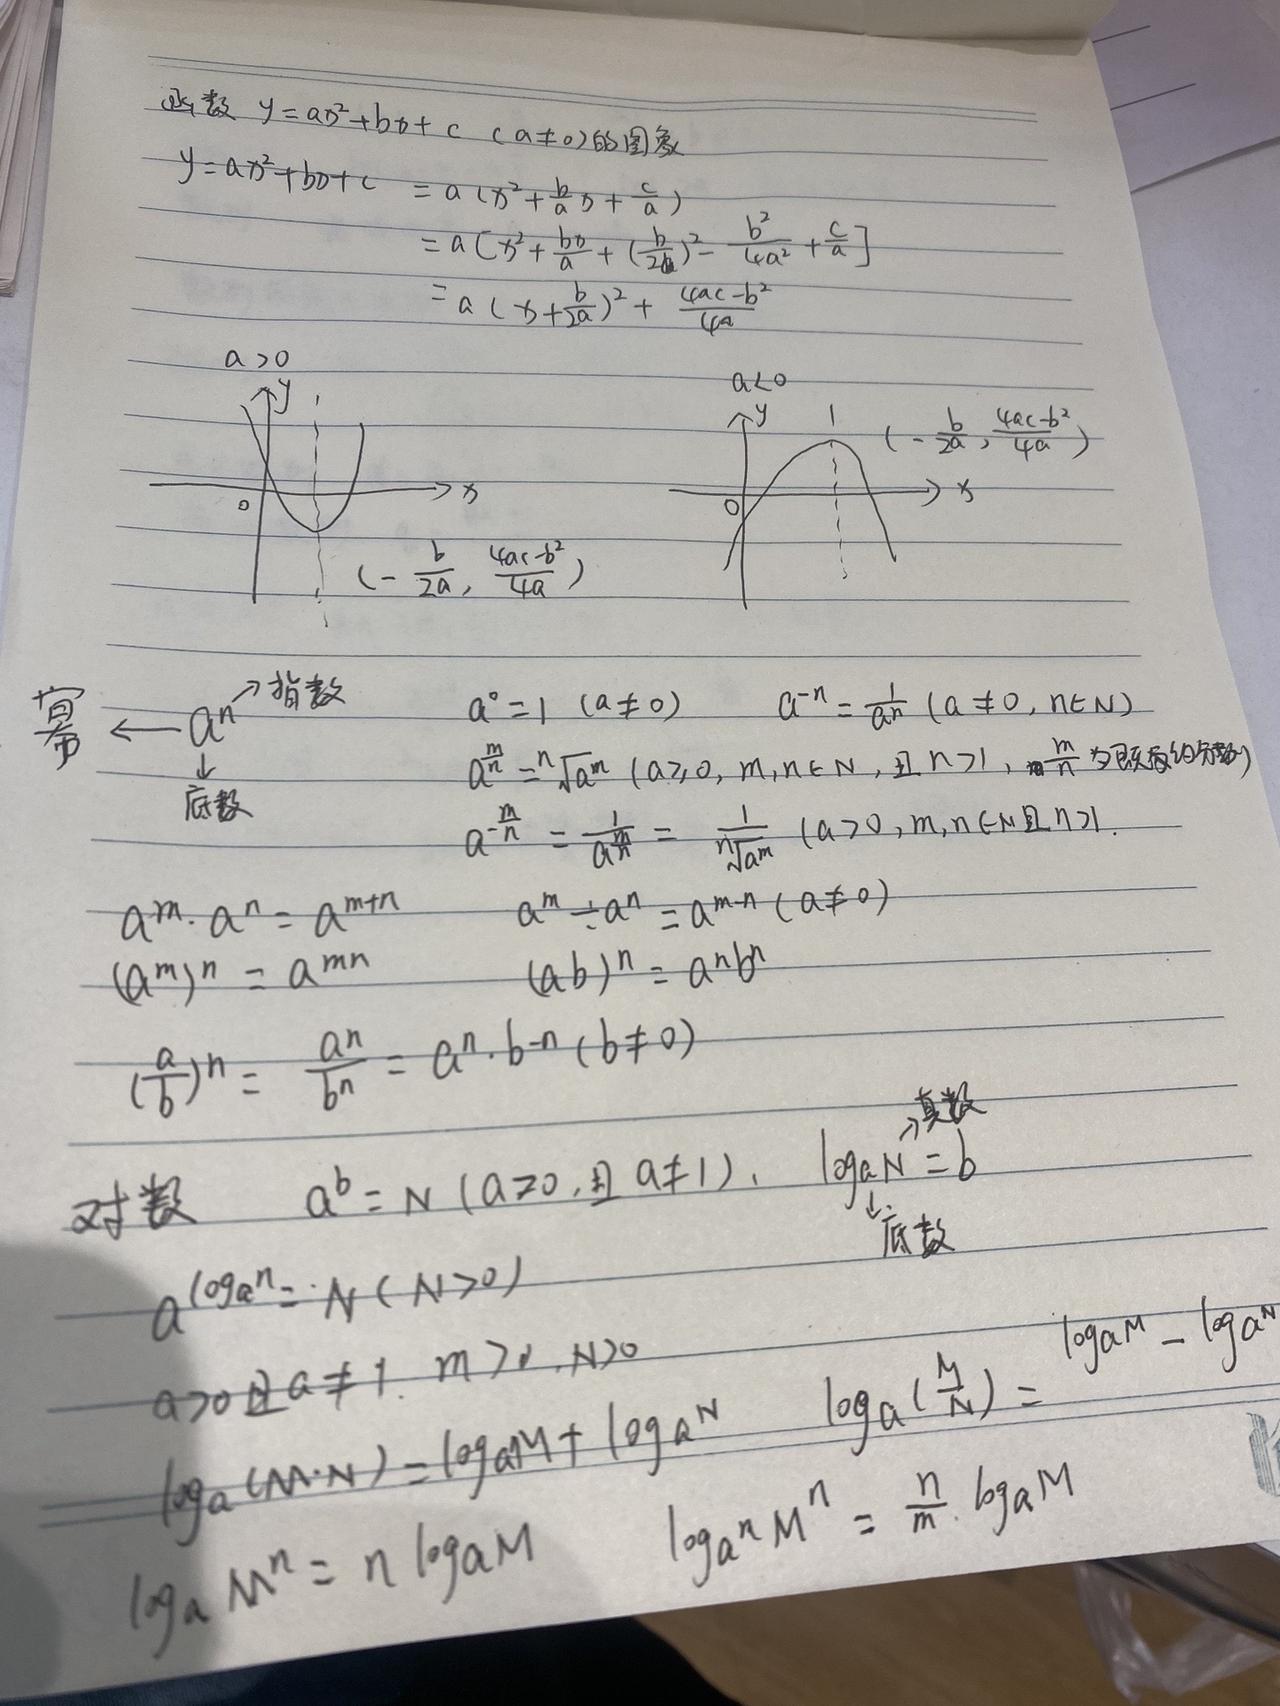 函数 y=ax²+bx+c (a≠0)的图象
y=ax²+bx+c = a(x²+b/a x+c/a)
=a[x²+bx/a+(b/2a)²-b²/4a²+c/a]
=a(x+b/2a)²+(4ac-b²)/4a
a>0 a<0
y y (-b/2a, (4ac-b²)/4a)
0 x 0 x
(-b/2a, (4ac-b²)/4a)
幂 ← aⁿ ↗ 指数
↓
底数
a⁰=1 (a≠0) a⁻ⁿ=1/aⁿ (a≠0, n∈N)
a^(m/n)=ⁿ√aᵐ (a≥0, m,n∈N, 且n>1, m/n为既约分数)
a^(-m/n)=1/a^(m/n)=1/ⁿ√aᵐ (a>0, m,n∈N且n>1.
aᵐ·aⁿ=aᵐ⁺ⁿ aᵐ÷aⁿ=aᵐ⁻ⁿ (a≠0)
(aᵐ)ⁿ=aᵐⁿ (ab)ⁿ=aⁿbⁿ
(a/b)ⁿ=aⁿ/bⁿ=aⁿ·b⁻ⁿ (b≠0)
↗真数
对数 aᵇ=N (a≥0,且a≠1). logaN=b
↓
底数
a^(logaⁿ)=N (N>0)
a>0且a≠1. m>0.N>0
loga(M·N)=logaM+logaN loga(M/N)=logaM-logaN
logaMⁿ=nlogaM logaⁿMⁿ=n/m·logaM